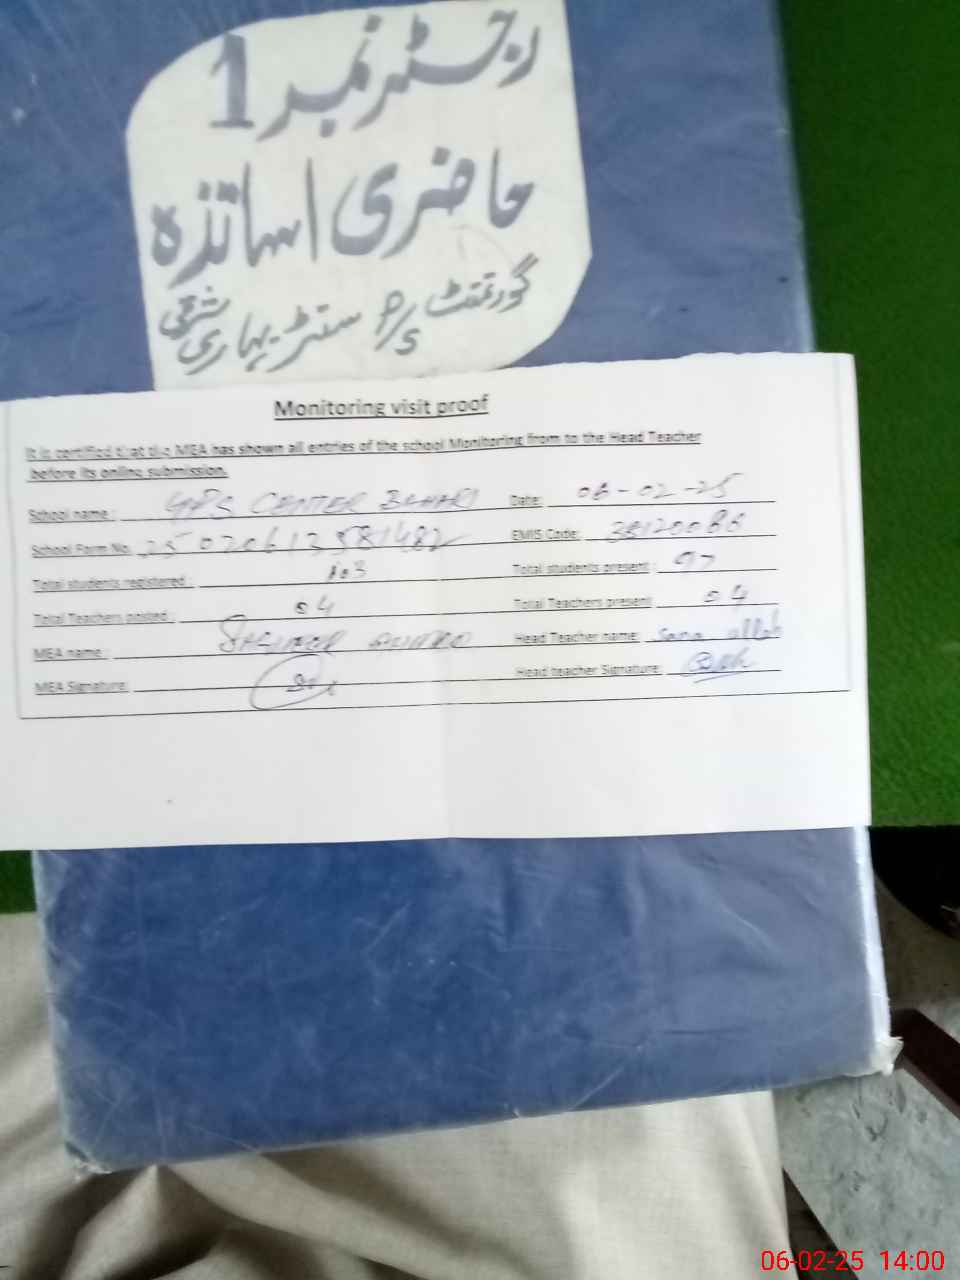 رجسٹر نمبر 1
حاضری اساتذہ
گورنمنٹ پر سنٹر بہاری شرقی
Monitoring visit proof
It is certified that the MEA has shown all entries of the school Monitoring from to the Head Teacher
before its online submission.
School name : GPS CENTER BEHARI Date: 06-02-25
School Form No. EMIS Code:
Total students registered : 103 Total students present : 97
Total Teachers posted : 04 Total Teachers present 04
MEA name : Head Teacher name: Sana ullah
MEA Signature: Head teacher Signature:
06-02-25 14:00